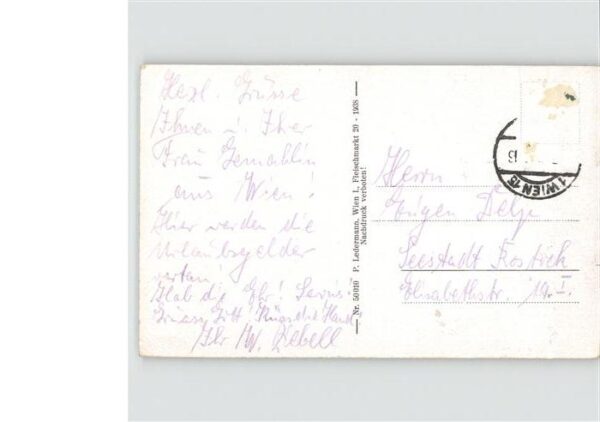 Herzl. Grüsse
Ihnen u. Ihrer
Frau Gemahlin
aus Wien!
Hier werden die
Urlaubsgelder
vertan!
Hab die Ehr! Servus!
Grüass Gott! Küss die Hand
Ihr W. Zebell
Nr. 50010 P. Ledermann, Wien I., Fleischmarkt 20 - 1938
Nachdruck verboten!
1 WIEN 15
Herrn
Eugen
Seestadt Rostock
Elisabethstr. 19. I.